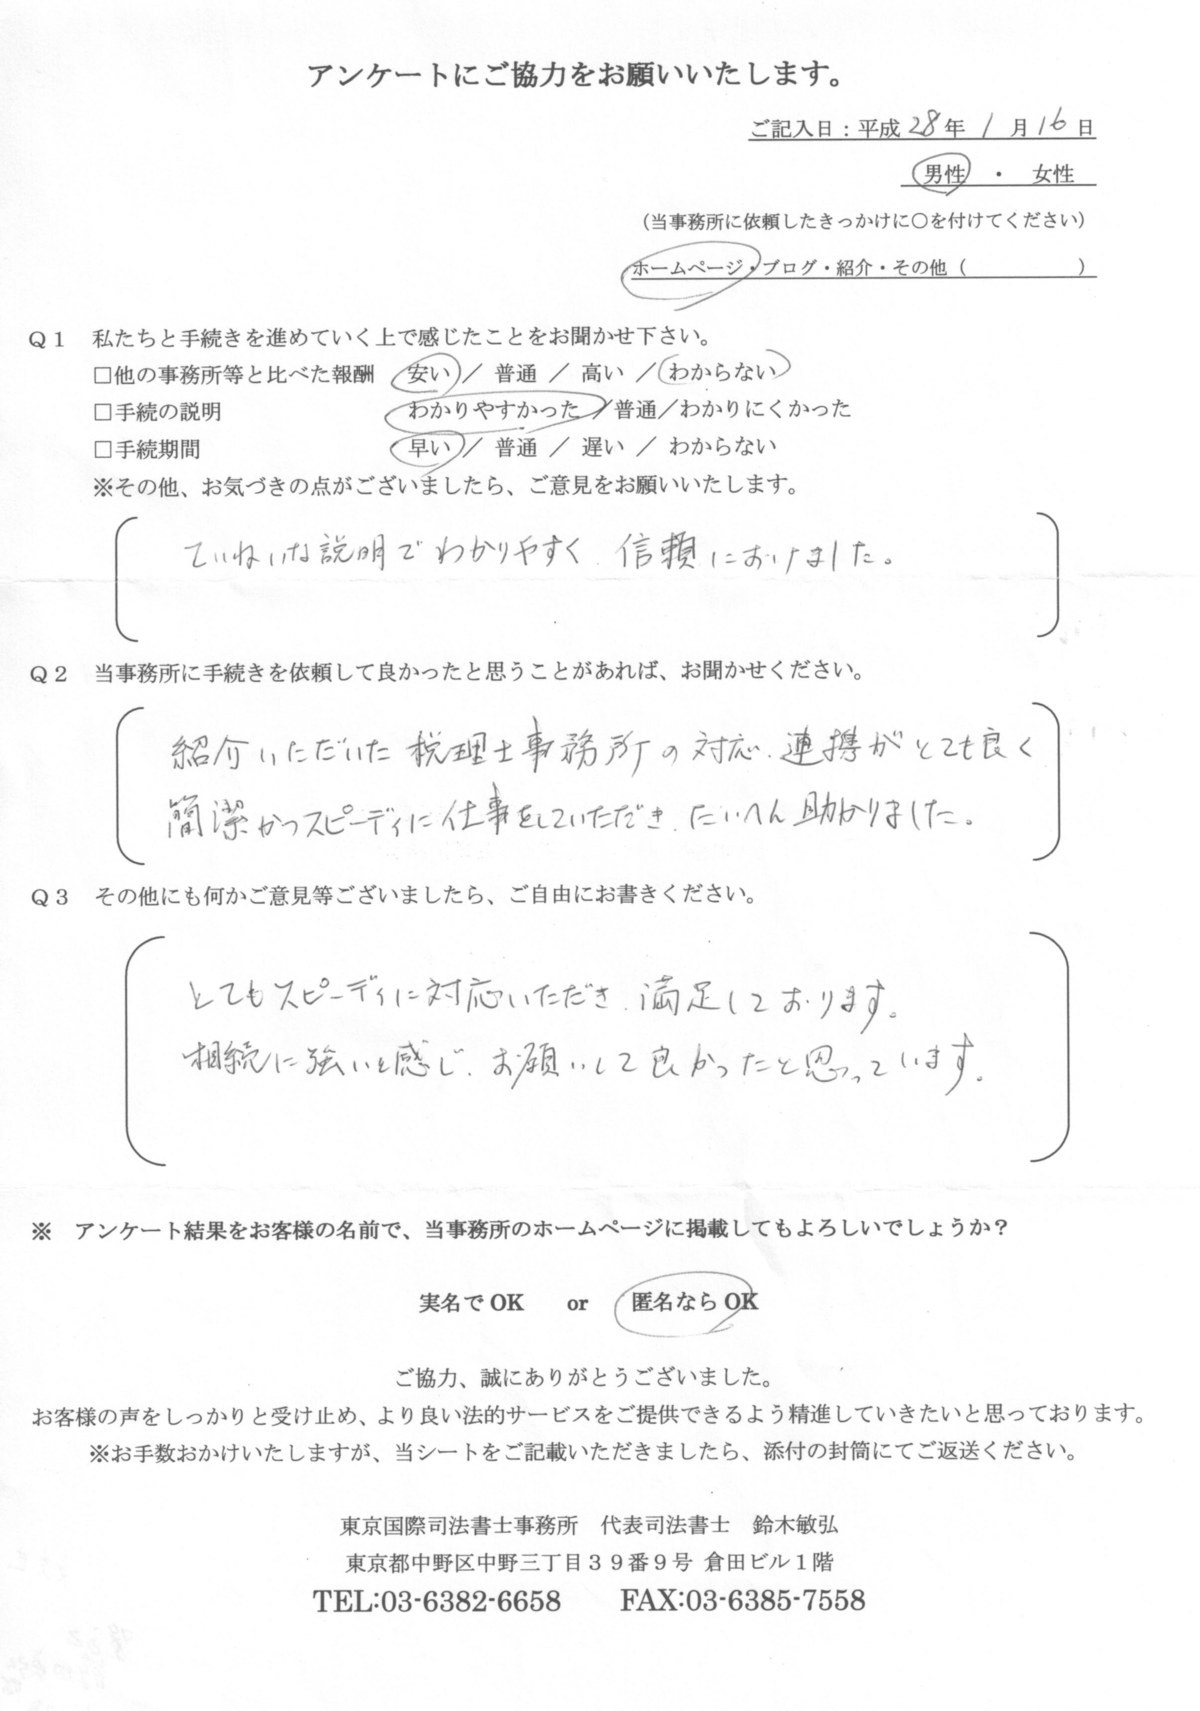 アンケートにご協力をお願いいたします。
ご記入日：平成 28 年 1 月 16 日
男性 ・ 女性
（当事務所に依頼したきっかけに○を付けてください）
ホームページ・ブログ・紹介・その他（　　　　　　）
Q１　私たちと手続きを進めていく上で感じたことをお聞かせ下さい。
□他の事務所等と比べた報酬　安い ／ 普通 ／ 高い ／ わからない
□手続の説明　わかりやすかった ／普通／わかりにくかった
□手続期間　早い ／ 普通 ／ 遅い ／ わからない
※その他、お気づきの点がございましたら、ご意見をお願いいたします。
ていねいな説明でわかりやすく、信頼におけました。
Q２　当事務所に手続きを依頼して良かったと思うことがあれば、お聞かせください。
紹介いただいた税理士事務所の対応、連携がとても良く
簡潔かつスピーディに仕事をしていただき、たいへん助かりました。
Q３　その他にも何かご意見等ございましたら、ご自由にお書きください。
とてもスピーディに対応いただき、満足しております。
相続に強いと感じ、お願いして良かったと思っています。
※　アンケート結果をお客様の名前で、当事務所のホームページに掲載してもよろしいでしょうか？
実名で OK　or　匿名なら OK
ご協力、誠にありがとうございました。
お客様の声をしっかりと受け止め、より良い法的サービスをご提供できるよう精進していきたいと思っております。
※お手数おかけいたしますが、当シートをご記載いただきましたら、添付の封筒にてご返送ください。
東京国際司法書士事務所　代表司法書士　鈴木敏弘
東京都中野区中野三丁目３９番９号 倉田ビル１階
TEL:03-6382-6658　FAX:03-6385-7558